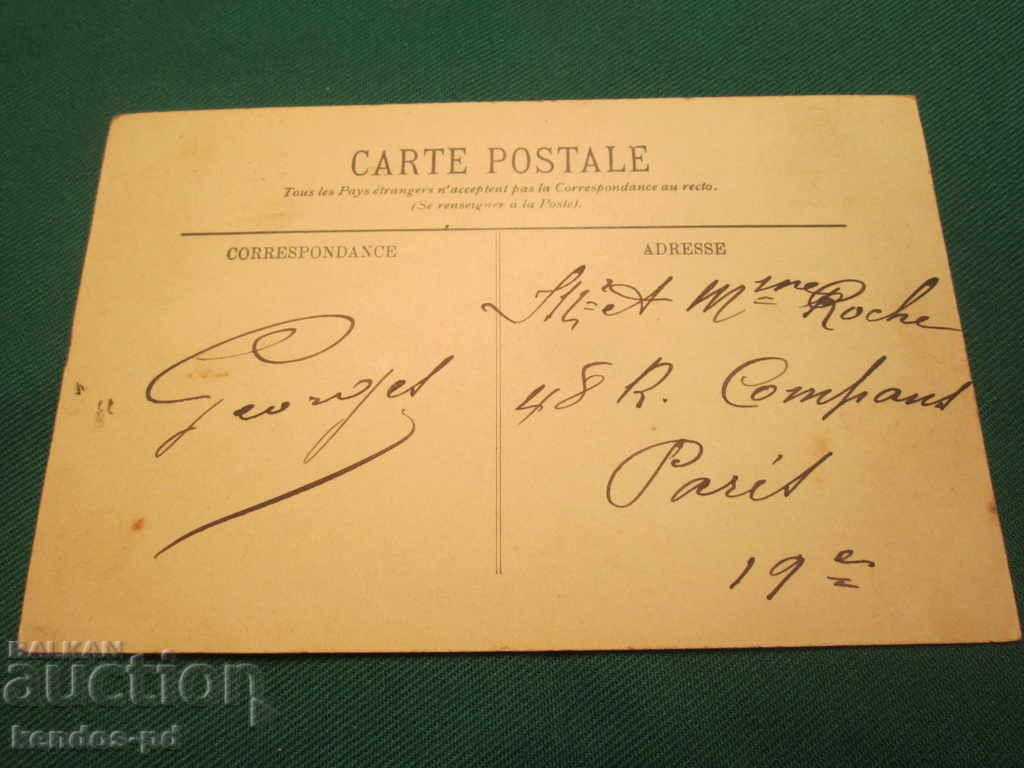 CARTE POSTALE
Tous les Pays étrangers n'acceptent pas la Correspondance au recto.
(Se renseigner à la Poste).
CORRESPONDANCE
ADRESSE
Georges
Mr et Mme Roche
48 R. Compans
Paris
19e
BALKAN
auction
kendos-pd